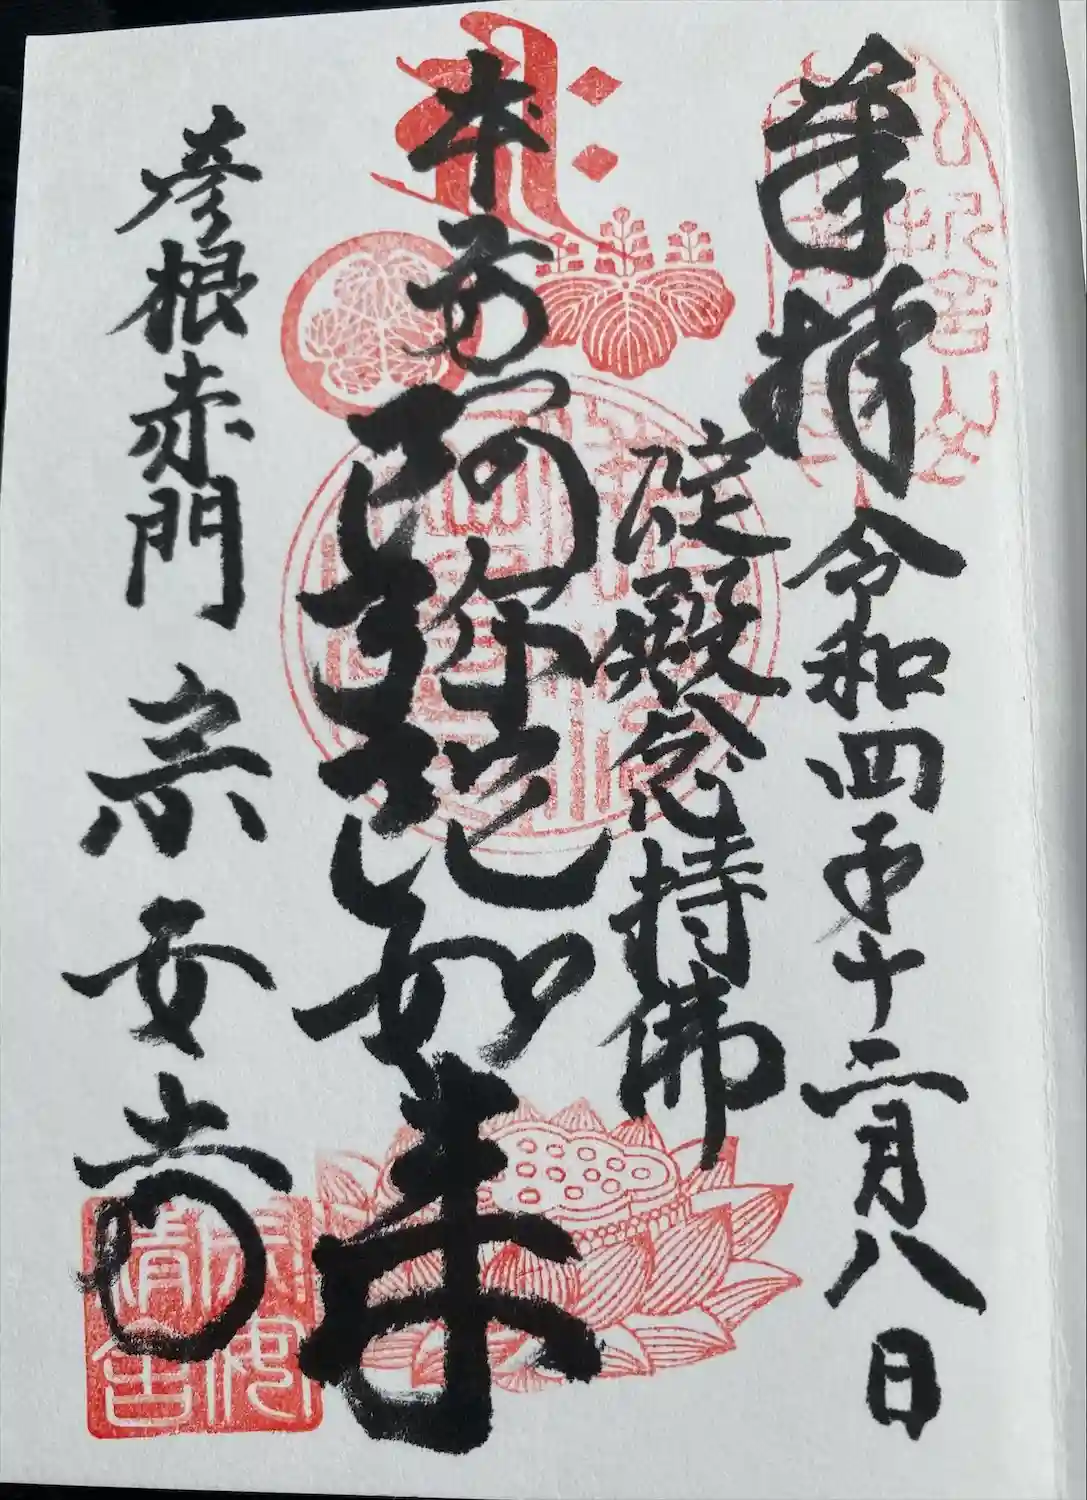 奉拝
令和四年十二月八日
淀殿念持佛
本尊
阿弥陀如来
彦根赤門
宗安寺